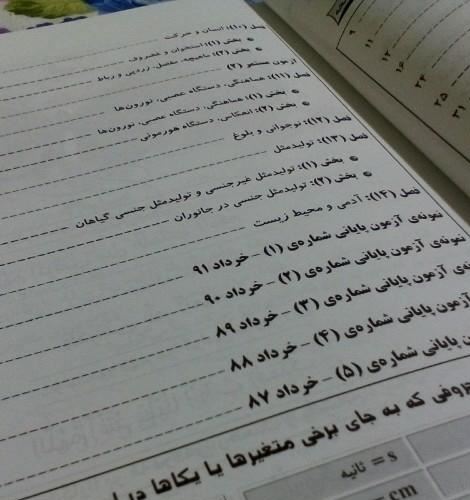 فصل (۱۰): انسان و حرکت
• بخش (۱): استخوان و غضروف
• بخش (۲): ماهیچه، مفصل، زردپی و رباط
آزمون مستمر (۲)
فصل (۱۱): هماهنگی، دستگاه عصبی، نورون‌ها
• بخش (۱): هماهنگی، دستگاه عصبی، نورون‌ها
• بخش (۲): انعکاس، دستگاه هورمونی
فصل (۱۲): نوجوانی و بلوغ
فصل (۱۳): تولیدمثل
• بخش (۱): تولیدمثل غیرجنسی و تولیدمثل جنسی گیاهان
• بخش (۲): تولیدمثل جنسی در جانوران
فصل (۱۴): آدمی و محیط زیست
نمونه‌ی آزمون پایانی شماره‌ی (۱) – خرداد ۹۱
نمونه‌ی آزمون پایانی شماره‌ی (۲) – خرداد ۹۰
آزمون پایانی شماره‌ی (۳) – خرداد ۸۹
آزمون پایانی شماره‌ی (۴) – خرداد ۸۸
پایانی شماره‌ی (۵) – خرداد ۸۷
که به جای برخی متغیرها یا یکاها در
s = ثانیه
۹
۱۱
۱۲
۱۶
۲۲
۲۵
۳۱